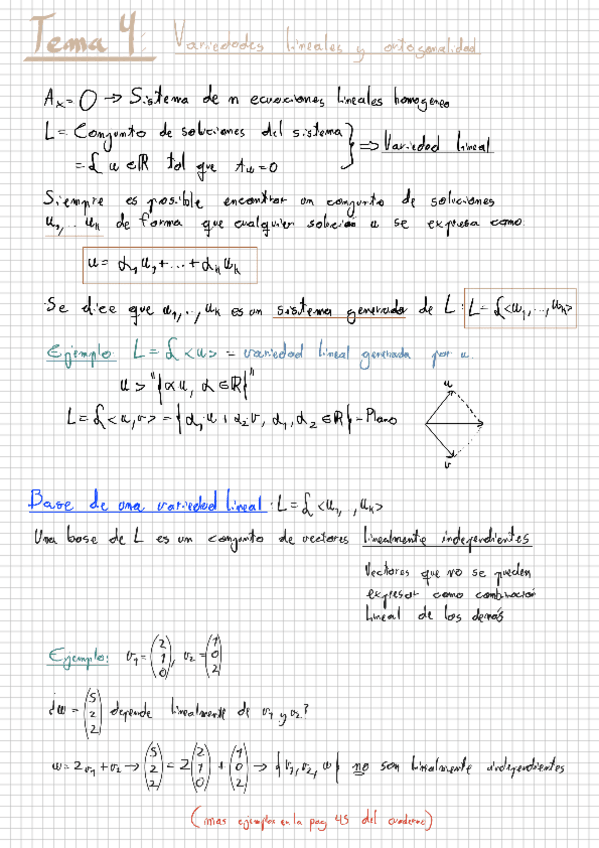 Tema 4: Variedades lineales y ortogonalidad
Ax = 0 → Sistema de n ecuaciones lineales homogeneo
L = Conjunto de soluciones del sistema
= L u ∈ ℝ tal que Au = 0
} ⇒ Variedad lineal
Siempre es posible encontrar un conjunto de soluciones
u₁, .. uₖ de forma que cualquier solución u se expresa como
u = α₁u₁ + ... + αₖuₖ
·Se dice que u₁, .., uₖ es un sistema generador de L : L = L<u₁, ..., uₖ>
Ejemplo: L = L<u> = variedad lineal generada por u.
u > "{αu, α ∈ ℝ}"
L = L<u, v> = {α₁u + α₂v, α₁, α₂ ∈ ℝ} - Plano
u
v
Base de una variedad lineal : L = L <u₁, , uₖ>
Una base de L es un conjunto de vectores linealmente independientes
Vectores que no se pueden
expresar como combinación
lineal de los demás
Ejemplo: v₁ = (2 1 0), v₂ = (1 0 2)
¿w = (5 2 2) depende linealmente de v₁ y v₂?
w = 2v₁ + v₂ → (5 2 2) = 2(2 1 0) + (1 0 2) → {v₁, v₂, w} no son linealmente independientes
(mas ejemplos en la pag 45 del cuaderno)